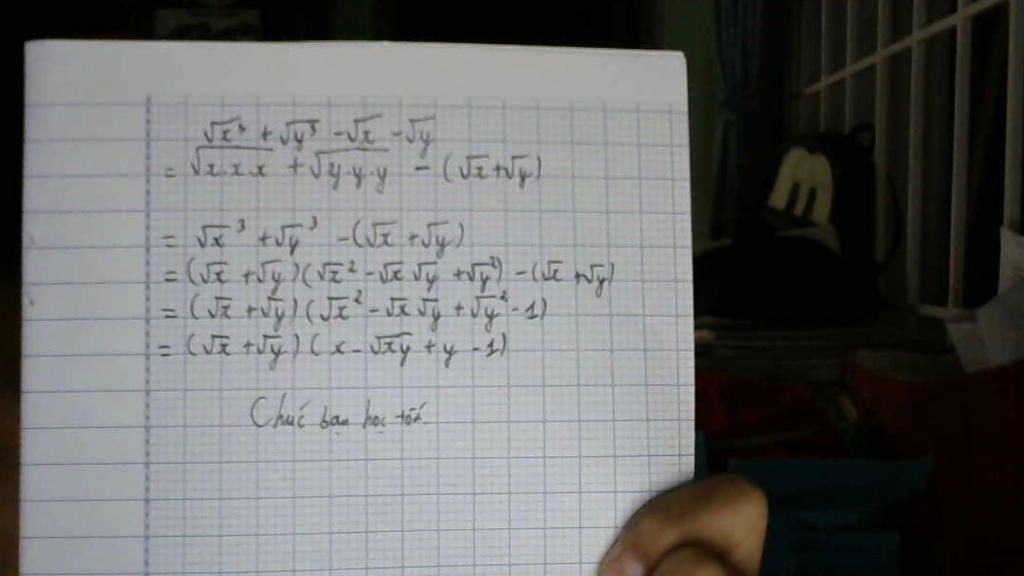 √x³ + √y³ - √x - √y
= √x.x.x + √y.y.y - (√x+√y)
= √x³ + √y³ - (√x + √y)
= (√x + √y)(√x² - √x√y + √y²) - (√x + √y)
= (√x + √y)(√x² - √x√y + √y² - 1)
= (√x + √y)(x - √xy + y - 1)
Chúc bạn học tốt